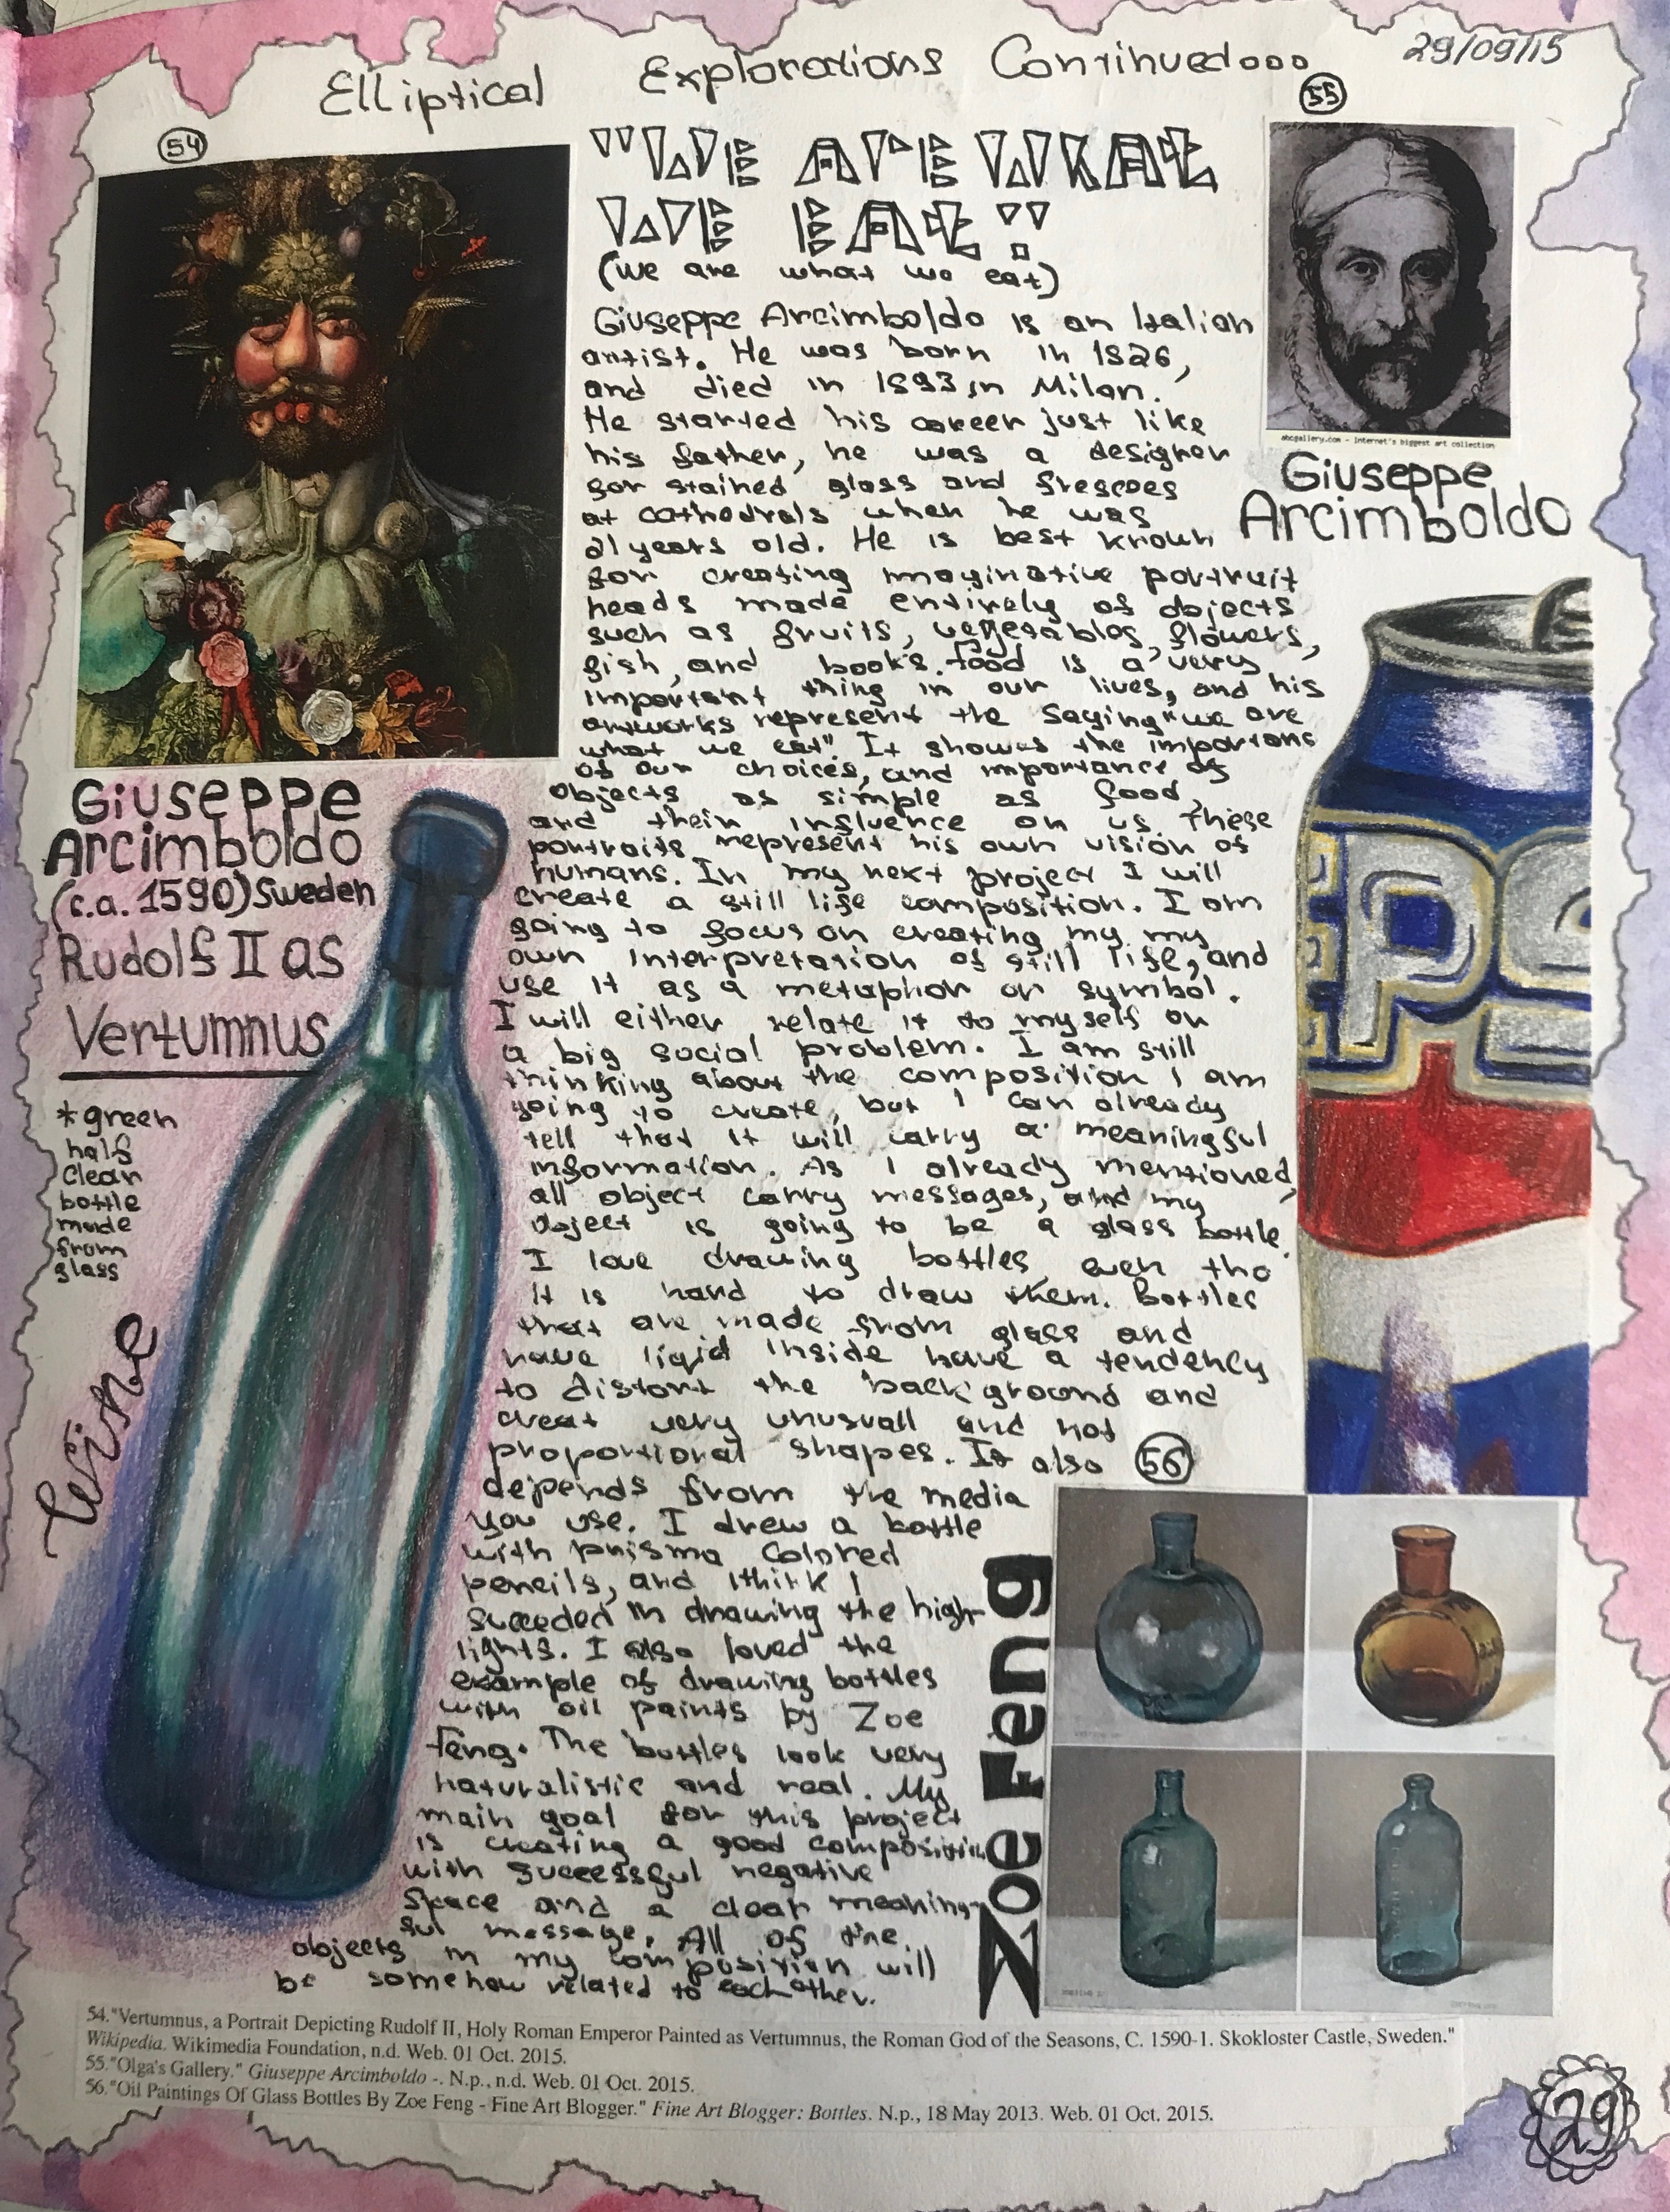 Elliptical Explorations Continued...
29/09/15
54
55
"WE ARE WHAT
WE EAT"
(we are what we eat)
Giuseppe Arcimboldo is an Italian
artist. He was born in 1526,
and died in 1593 in Milan.
He started his career just like
his father, he was a designer
for stained glass and frescoes
at cathedrals when he was
21 years old. He is best known
for creating imaginative portrait
heads made entirely of objects
such as fruits, vegetables, flowers,
fish, and books. Food is a very
important thing in our lives, and his
artworks represent the saying "we are
what we eat". It shows the importans
of our choices, and importance of
objects as simple as food,
and their influence on us. These
portraits represent his own vision of
humans. In my next project I will
create a still life composition. I am
going to focus on creating my my
own interpretation of still life, and
use it as a metaphor or symbol.
I will either relate it to myself or
a big social problem. I am still
thinking about the composition I am
going to create, but I can already
tell that it will carry a meaningful
information. As I already mentioned,
all object carry messages, and my
object is going to be a glass bottle.
I love drawing bottles even tho
it is hard to draw them. Bottles
that are made from glass and
have liqid inside have a tendency
to distort the background and
creat very unusuall and not
proportional shapes. It also
depends from the media
you use. I drew a bottle
with prisma colored
pencils, and I think I
succeded in drawing the high-
lights. I also loved the
example of drawing bottles
with oil paints by Zoe
Feng. The bottles look very
naturalistic and real. My
main goal for this project
is creating a good composition
with successful negative
space and a clear meaning-
ful message. All of the
objects in my composition will
be somehow related to each other.
abcgallery.com - Internet's biggest art collection
Giuseppe
Arcimboldo
Giuseppe
Arcimboldo
(c.a. 1590) Sweden
Rudolf II as
Vertumnus
*green
half
clean
bottle
made
from
glass
Wine
EPS
56
Zoe Feng
54."Vertumnus, a Portrait Depicting Rudolf II, Holy Roman Emperor Painted as Vertumnus, the Roman God of the Seasons, C. 1590-1. Skokloster Castle, Sweden."
Wikipedia. Wikimedia Foundation, n.d. Web. 01 Oct. 2015.
55."Olga's Gallery." Giuseppe Arcimboldo -. N.p., n.d. Web. 01 Oct. 2015.
56."Oil Paintings Of Glass Bottles By Zoe Feng - Fine Art Blogger." Fine Art Blogger: Bottles. N.p., 18 May 2013. Web. 01 Oct. 2015.
29